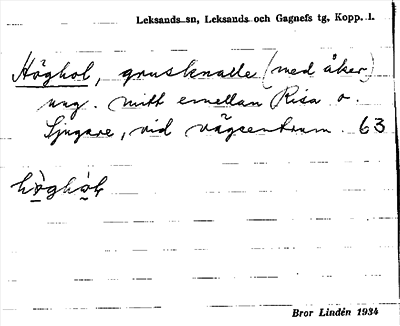 Leksands sn, Leksands och Gagnefs tg, Kopp. l.
Höghol, grusknalle (med åker)
ung. mitt emellan Risa o.
Ljugare, vid vägcentrum. 63
Bror Lindén 1934